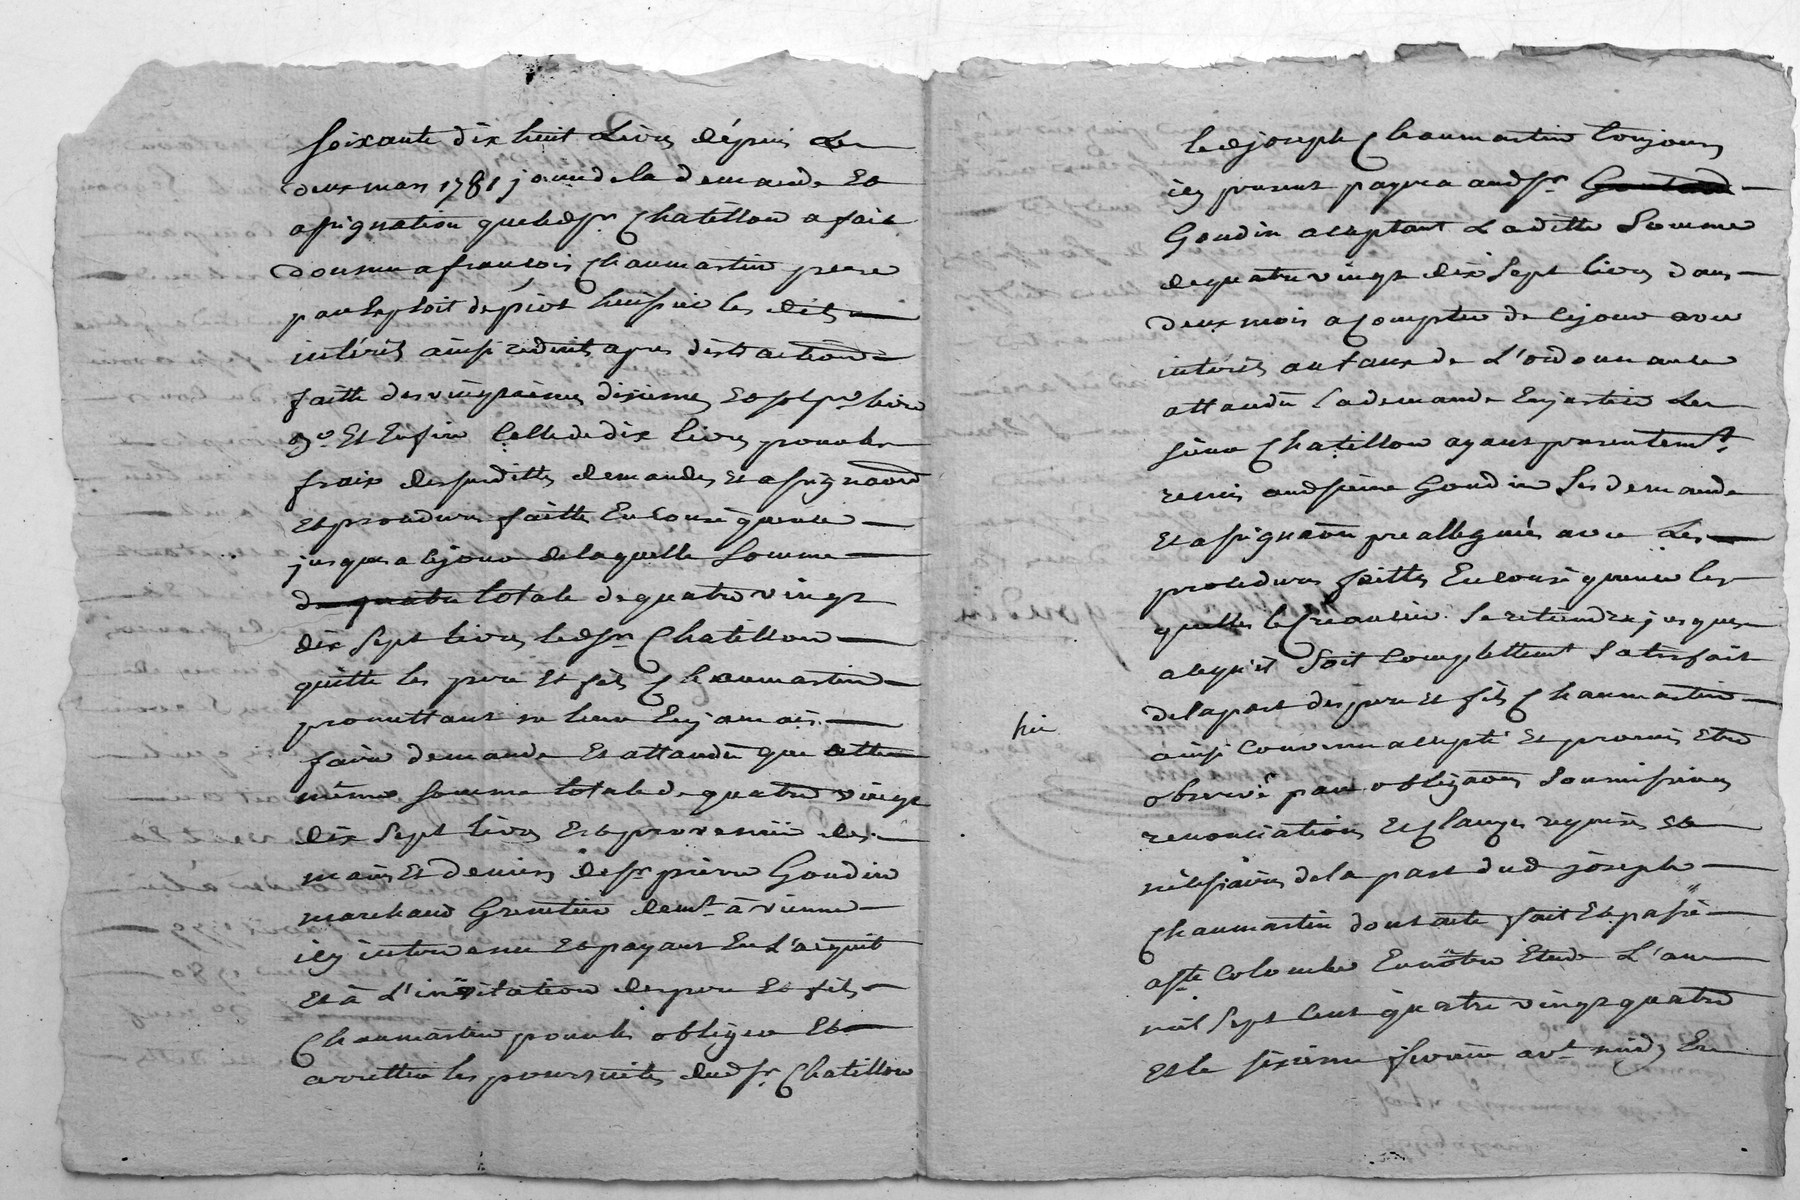 soixante dix huit Livres dépuis Le
deux mars 1781 jour de la demande Et
assignation que led sr. Chatillon a fait
donner a francois Chaumartin pere
par Exploit de piot huissier les dits
intérèts ainsi reduits apres distraction
faitte des vingtiemes dixiemes Et sols pr. livre
3o. Et Enfin Celle de dix livres pour les
fraix des susdittes demandes Et assignaõn
Et procedures faittes En conséquence
jusques a ce jour de laquelle Somme
de quatre totale de quatre vingt
dix sept livres led sr. Chatillon
quitte les pere Et fils Chaumartin
promettant ne leur En jamais
faire demande Et attandu que cette
même somme totale de quatre vingt
dix sept livres Est provenüe des
mains Et deniers de sr. pierre Goudin
marchand Grenetier demt. à vienne
icy intervenu Et payant En L'acquit
Et à L'invitation des pere Et fils
Chaumartin pour les obliger Et
arretter les poursuites dud sr. Chatillon
led joseph Chaumartin toujours
icy present payera aud sr.
Goudin aceptant Laditte Somme
de quatre vingt dix sept livres dans
deux mois a Compter de ce jour avec
intérèts au taux de L'ordonnance
attandu la demande En justice Le
sieur Chatillon ayant presentemt.
remis aud sieur Goudin Les demande
Et assignaõn pre alleguées avec Les
procedures faittes En conséquence les
quelles le Créancier se retiendra jusques
a ce qu'il soit Complettemt. satisfait
de la part des pere Et fils Chaumartin
ainsi Convenu acepté Et promis Etre
observé par obligaõns soumissions
renonciations Et Clauzes requises Et
nécéssaires de la part dud joseph
Chaumartin dont acte fait Et passé
a ste Colombe En nôtre Etude L'an
mil sept cent quatre vingt quatre
Et le sixieme fevrier avt. midy En